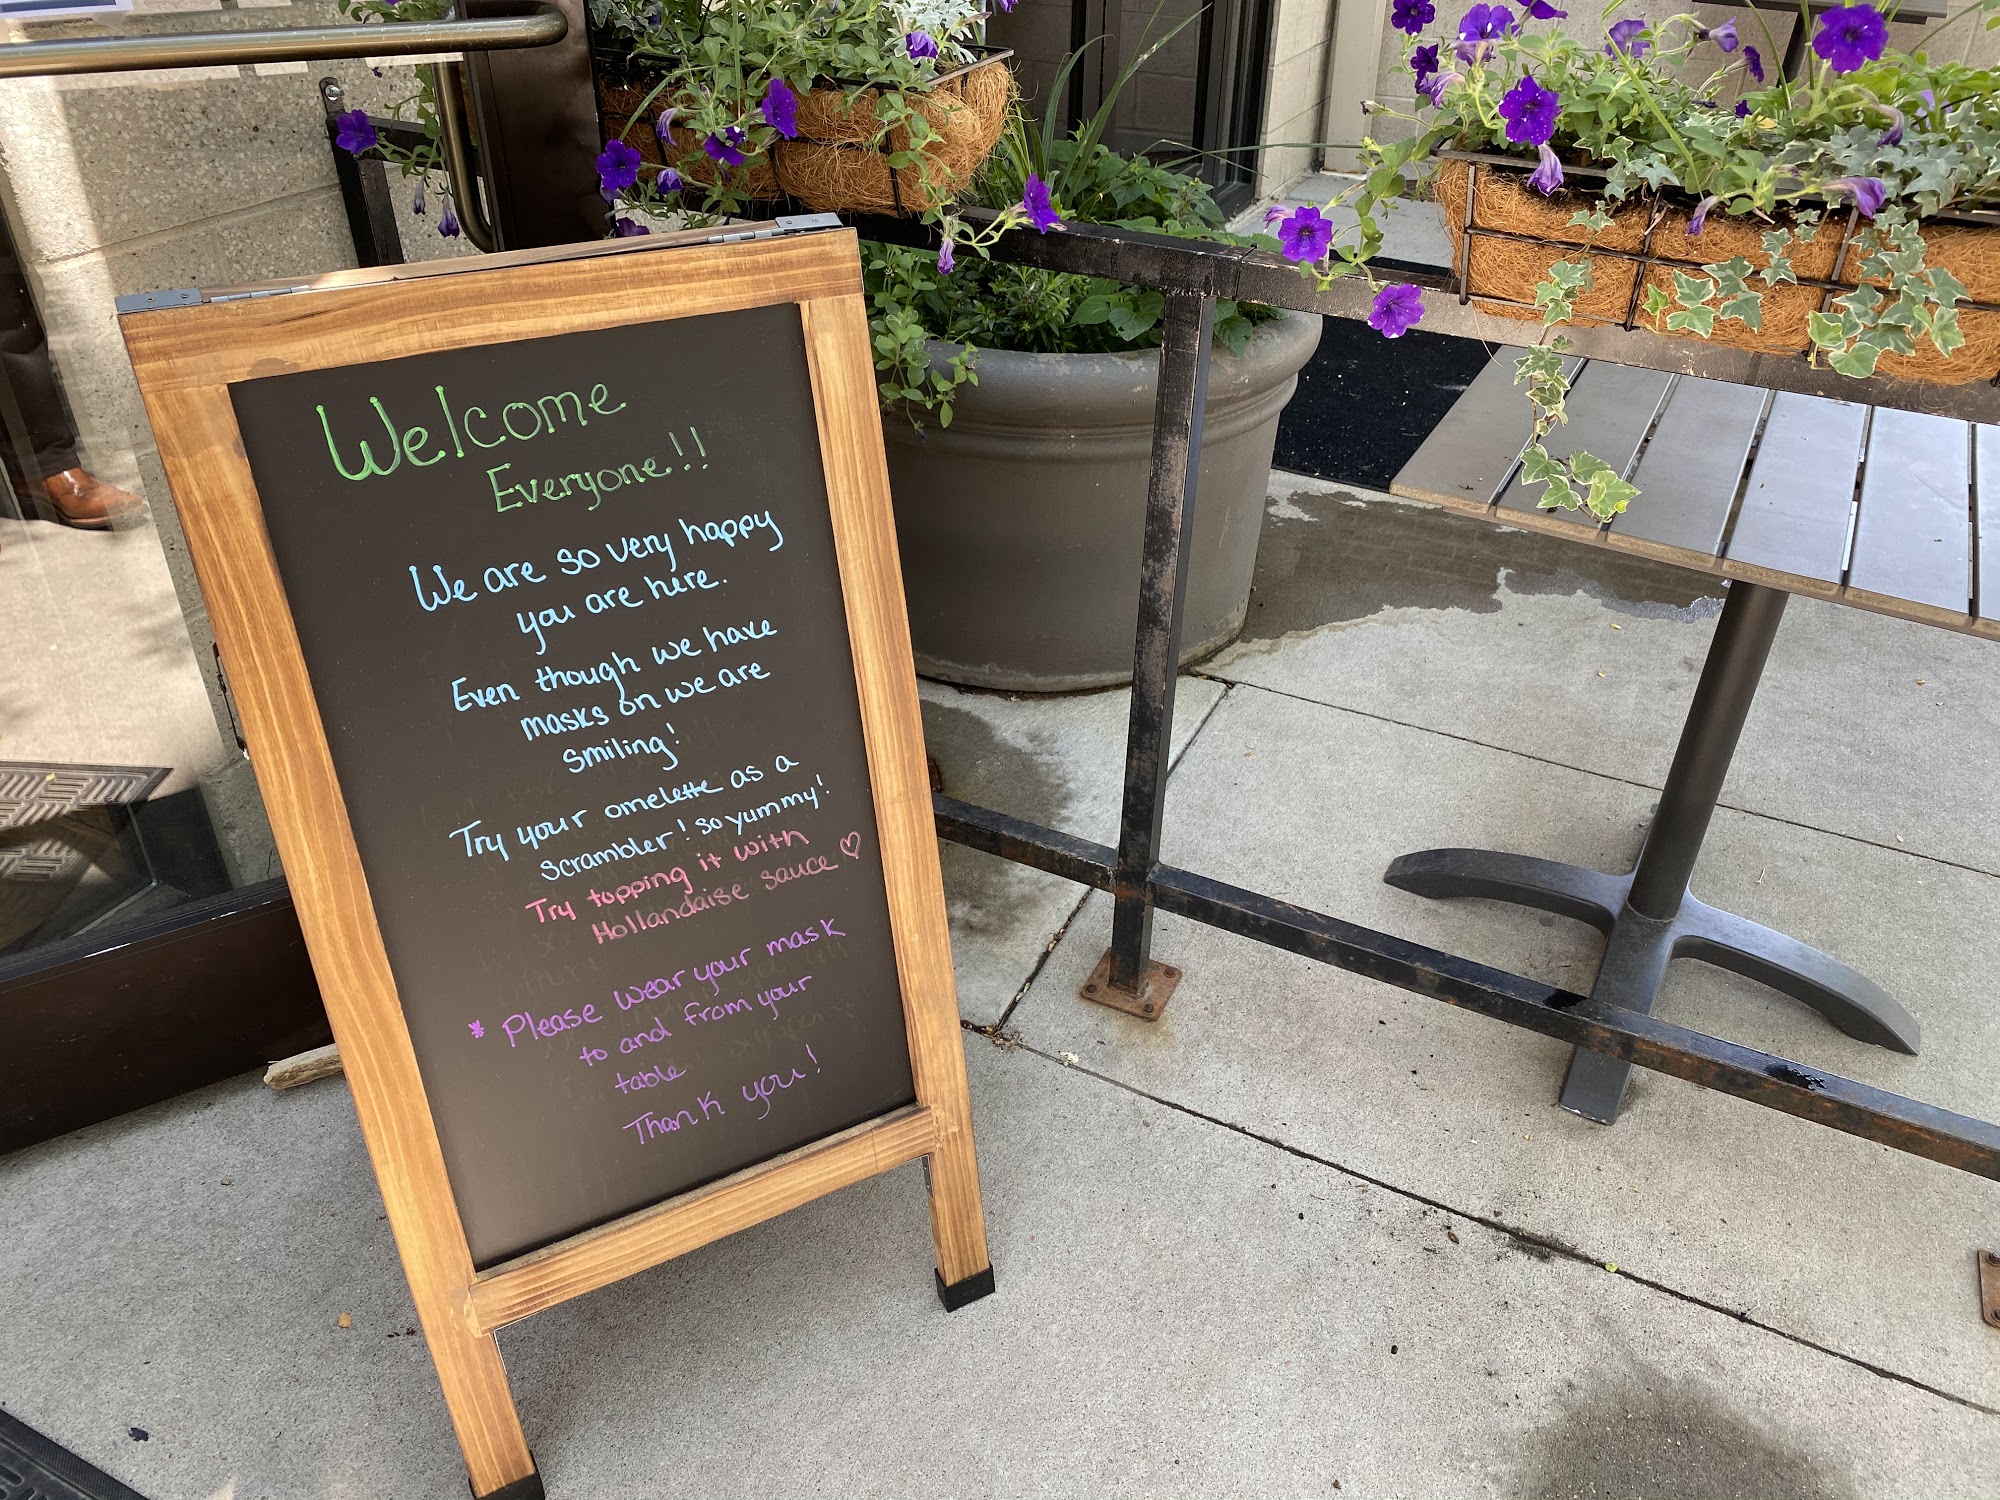 Welcome
Everyone!!
We are so very happy
you are here.
Even though we have
masks on we are
smiling!
Try your omelette as a
scrambler! so yummy!
Try topping it with
Hollandaise sauce ♡
* Please wear your mask
to and from your
table
Thank you!